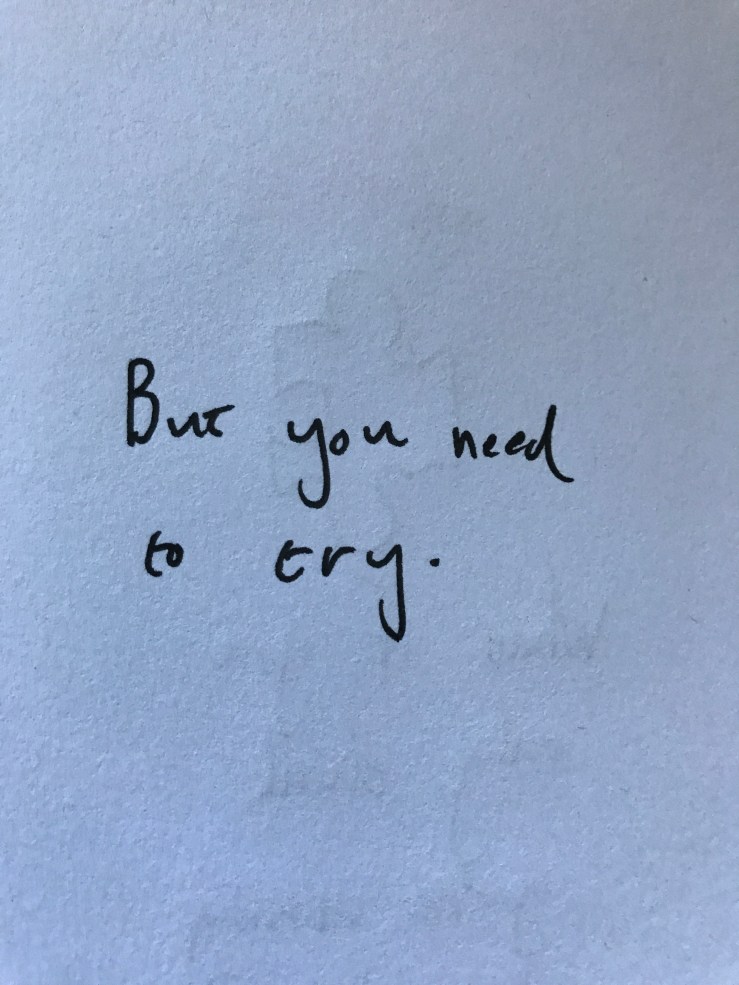 But you need
to try.